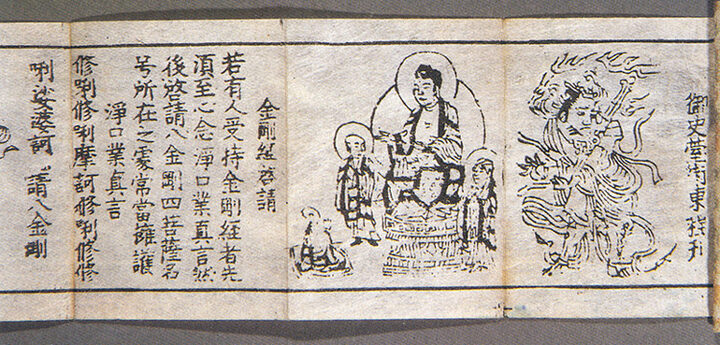 御史臺街東程升
金剛経啓請
若有人受持金剛経者先
湏至心念淨口業真言然
後啓請八金剛四菩薩名
号所在之處常當擁護
淨口業真言
修唎修唎摩訶修唎修修
唎娑婆訶 請八金剛